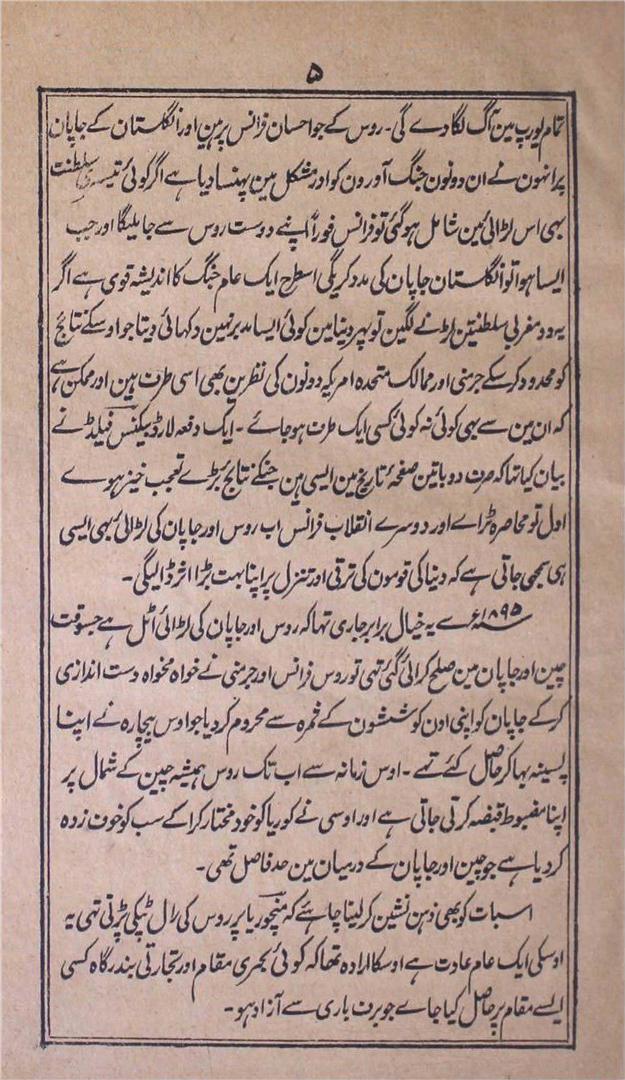 ۵
تمام یورپ مین آگ لگا دے گی۔ روس کے جو احسان فرانس پر ہین اور انگلستان کے جاپان
پر انہون نے ان دونون جنگ آورون کو اور مشکل مین پہنسا دیا ہے اگر کوئی تیسری سلطنت
بہی اس لڑائی مین شامل ہوگئی تو فرانس فوراً اپنے دوست روس سے جا ملیگا اور جب
ایسا ہوا تو انگلستان جاپان کی مدد کریگی اسطرح ایک عام جنگ کا اندیشہ قوی ہے اگر
یہ دو مغربی سلطنتین لڑنے لگین تو پہر دنیا مین کوئی ایسا مدبر نہین دکہائی دیتا جو اوسکے نتائج
کو محدود کر سکے جرمنی اور ممالک متحدہ امریکہ دونون کی نظرین بھی اسی طرف ہین اور ممکن ہے
کہ ان مین سے بہی کوئی نہ کوئی کسی ایک طرف ہو جائے ۔ ایک دفعہ لارڈ بیکنس فیلڈ نے
بیان کیا تہا کہ صرف دو باتین صفحۂ تاریخ مین ایسی ہین جنکے نتائج بڑے تعجب خیز ہوے
اول تو محاصرہ ٹراے اور دوسرے انقلاب فرانس اب روس اور جاپان کی لڑائی بہی ایسی
ہی سمجھی جاتی ہے کہ دنیا کی قومون کی ترقی اور تنزل پر اپنا بہت بڑا اثر ڈالیگی۔
سنہ ۱۸۹۵ء سے یہ خیال برابر جاری تہا کہ روس اور جاپان کی لڑائی اٹل ہے جسوقت
چین اور جاپان مین صلح کرائی گئی تہی تو روس فرانس اور جرمنی نے خواہ مخواہ دست اندازی
کرکے جاپان کو اپنی اون کوششون کے ثمرہ سے محروم کر دیا جو اوس بیچارہ نے اپنا
پسینہ بہا کر حاصل کئے تہے ۔ اوس زمانہ سے اب تک روس ہمیشہ چین کے شمال پر
اپنا مضبوط قبضہ کرتی جاتی ہے اور اوسی نے کوریا کو خود مختار کراکے سب کو خوف زدہ
کر دیا ہے جو چین اور جاپان کے درمیان مین حد فاصل تھی۔
اسبات کو بھی ذہن نشین کر لینا چاہئے کہ منچوریا پر روس کی رال ٹپکی پڑتی تہی یہ
اوسکی ایک عام عادت ہے اوسکا ارادہ تھا کہ کوئی بحری مقام اور تجارتی بندرگاہ کسی
ایسے مقام پر حاصل کیا جاے جو برف باری سے آزاد ہو۔